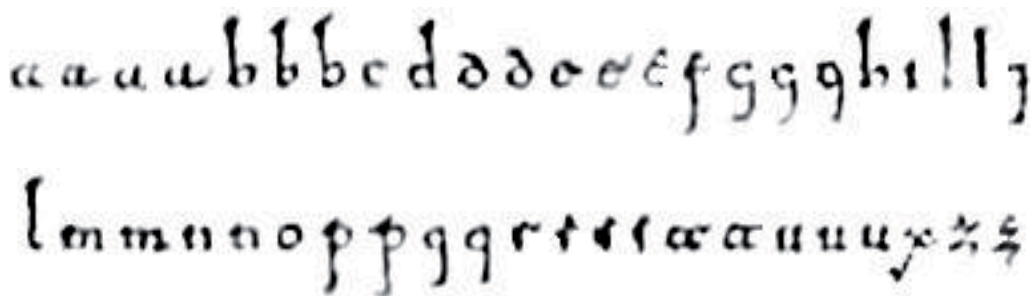 a a a a b b b c d d d e e e f g g g h i l l j
l m m n n o p p q q r r r r a a u u u x z z